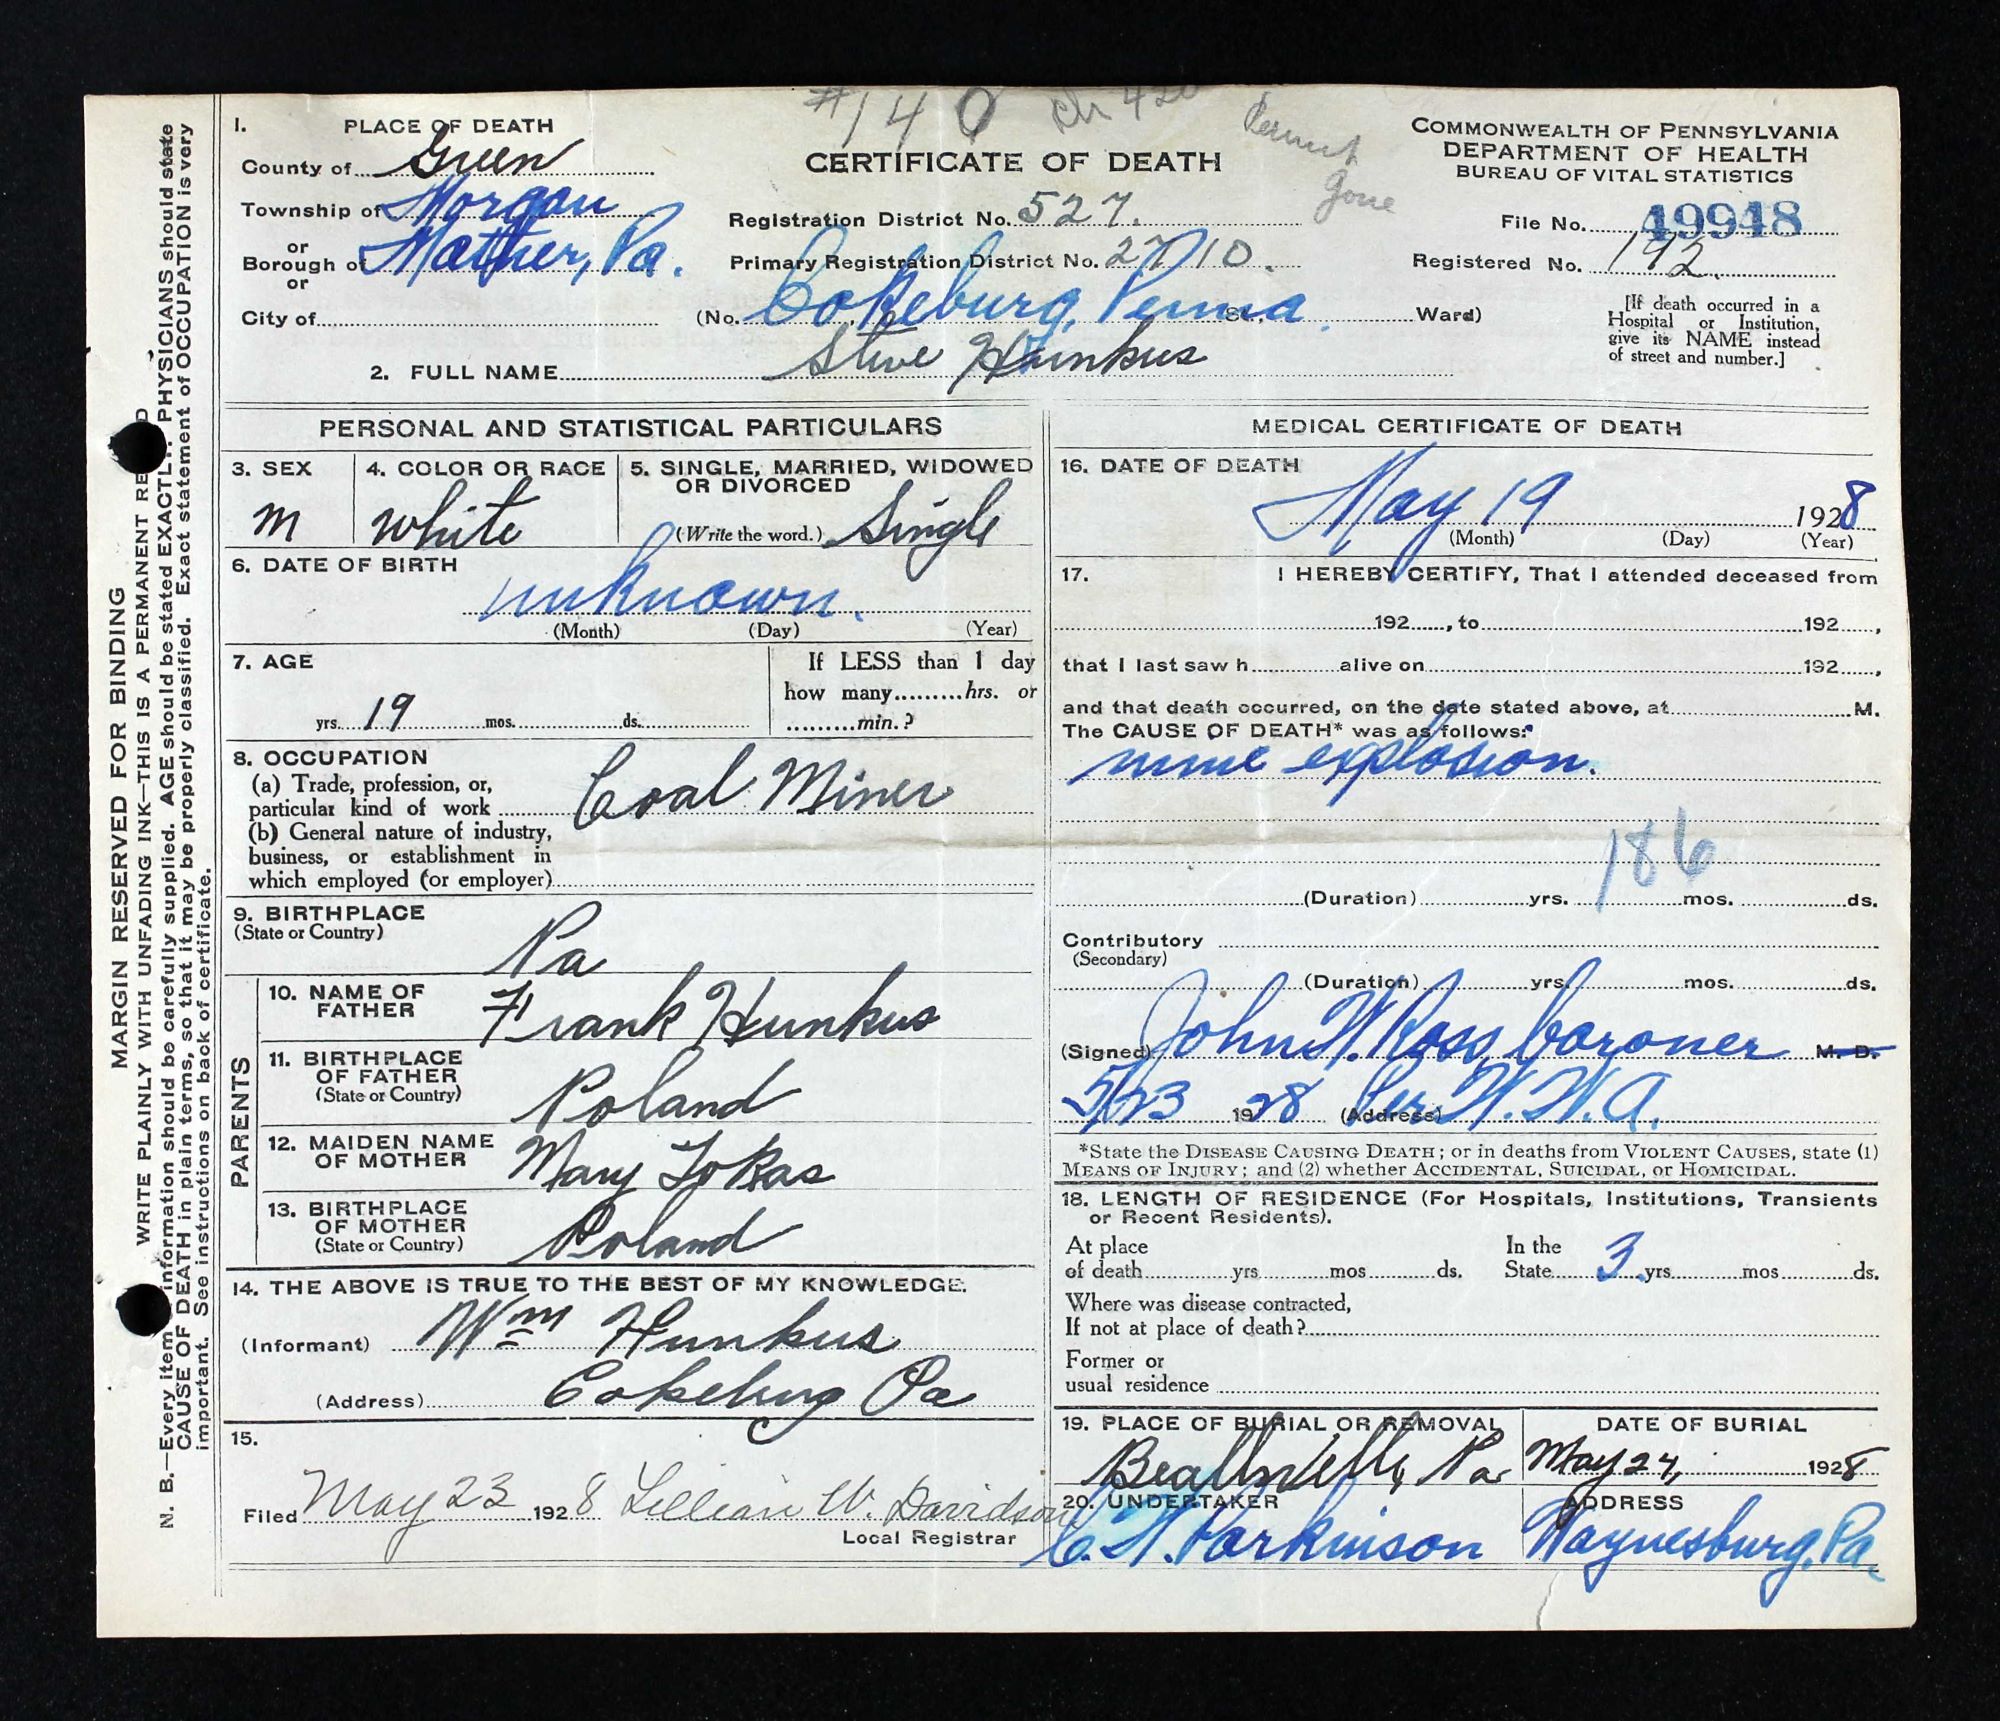 #140
1. PLACE OF DEATH
County of Green
Township of Morgan
or
Borough of Mather, Pa.
or
City of
CERTIFICATE OF DEATH
Registration District No. 527.
Primary Registration District No. 2710.
(No. Cokeburg, Penna. St., Ward)
COMMONWEALTH OF PENNSYLVANIA
DEPARTMENT OF HEALTH
BUREAU OF VITAL STATISTICS
File No. 49948
Registered No. 192.
[If death occurred in a
Hospital or Institution,
give its NAME instead
of street and number.]
2. FULL NAME Steve Hunkus
PERSONAL AND STATISTICAL PARTICULARS
3. SEX
m
4. COLOR OR RACE
white
5. SINGLE, MARRIED, WIDOWED
OR DIVORCED
(Write the word.) Single
6. DATE OF BIRTH
unknown.
(Month) (Day) (Year)
7. AGE
yrs. 19 mos. ds.
If LESS than 1 day
how many hrs. or
min.?
8. OCCUPATION
(a) Trade, profession, or,
particular kind of work Coal Miner
(b) General nature of industry,
business, or establishment in
which employed (or employer)
9. BIRTHPLACE
(State or Country)
Pa
PARENTS
10. NAME OF
FATHER
Frank Hunkus
11. BIRTHPLACE
OF FATHER
(State or Country)
Poland
12. MAIDEN NAME
OF MOTHER
Mary
13. BIRTHPLACE
OF MOTHER
(State or Country)
Poland
14. THE ABOVE IS TRUE TO THE BEST OF MY KNOWLEDGE.
(Informant) Wm Hunkus
(Address) Cokeburg Pa
15.
Filed May 23 1928 Lillian W. Davidson
Local Registrar
MEDICAL CERTIFICATE OF DEATH
16. DATE OF DEATH
May 19 1928
(Month) (Day) (Year)
17. I HEREBY CERTIFY, That I attended deceased from
192 , to 192 ,
that I last saw h alive on 192 ,
and that death occurred, on the date stated above, at M.
The CAUSE OF DEATH* was as follows:
mine explosion.
186
(Duration) yrs. mos. ds.
Contributory
(Secondary)
(Duration) yrs. mos. ds.
(Signed) John W. Ross, Coroner M. D.
5/23 1928 (Address) Per. W. W. A.
*State the DISEASE CAUSING DEATH; or in deaths from VIOLENT CAUSES, state (1)
MEANS OF INJURY; and (2) whether ACCIDENTAL, SUICIDAL, or HOMICIDAL.
18. LENGTH OF RESIDENCE (For Hospitals, Institutions, Transients
or Recent Residents).
At place
of death yrs mos ds.
In the
State 3 yrs mos ds.
Where was disease contracted,
If not at place of death?
Former or
usual residence
19. PLACE OF BURIAL OR REMOVAL
Beallsville, Pa
DATE OF BURIAL
May 24, 1928
20. UNDERTAKER
C. W. Parkinson
ADDRESS
Waynesburg, Pa.
MARGIN RESERVED FOR BINDING
WRITE PLAINLY WITH UNFADING INK—THIS IS A PERMANENT
N. B.—Every item information should be carefully supplied. AGE should be stated EXACTLY. PHYSICIANS should state
CAUSE OF DEATH in plain terms, so that it may be properly classified. Exact statement of OCCUPATION is very
important. See instructions on back of certificate.